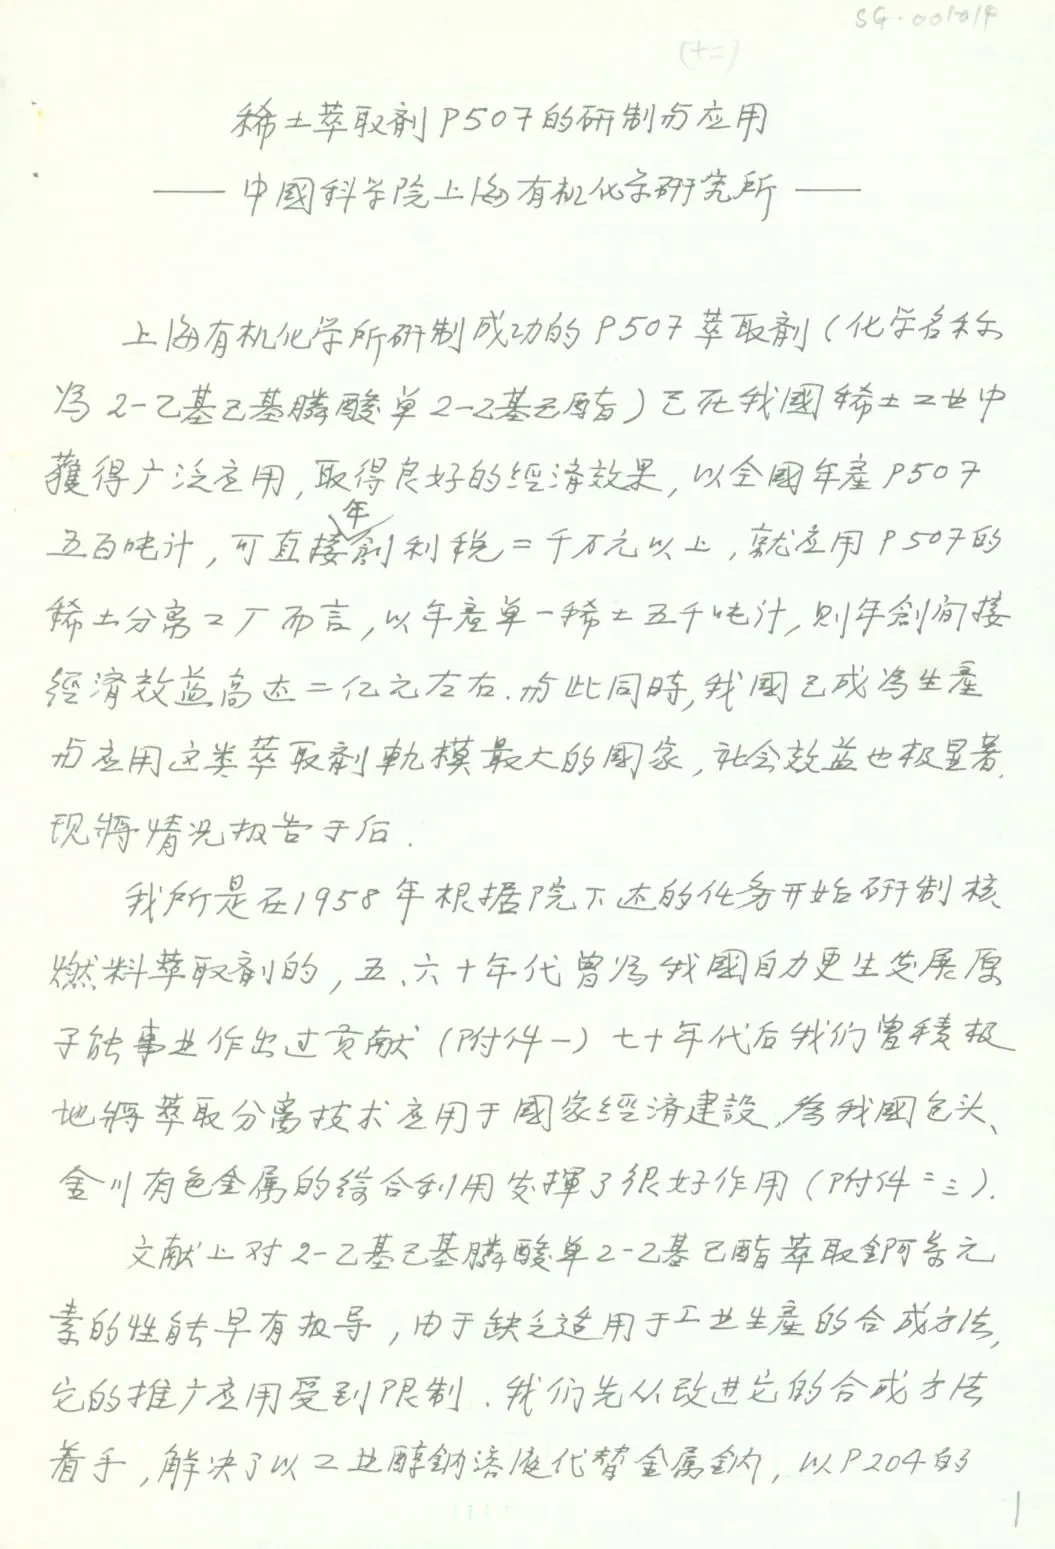 SG·001-014
(十二)
稀土萃取剂P507的研制与应用
——中國科学院上海有机化学研究所——
上海有机化学所研制成功的P507萃取剂(化学名称
为2-乙基己基膦酸单2-乙基己酯)已在我國稀土工业中
獲得广泛应用,取得良好的經済效果,以全國年產P507
年
五百吨计,可直接創利税二千万元以上,就应用P507的
稀土分离工厂而言,以年產单一稀土五千吨计,则年創间接
經濟效益高达二亿元左右.与此同時,我國已成为生產
与应用这类萃取剂規模最大的國家,社会效益也极显著.
现將情况报告于后.
我所是在1958年根据院下达的任务开始研制核
燃料萃取剂的,五、六十年代曾为我國自力更生发展原
子能事业作出过贡献(附件一)七十年代后我们曾積极
地將萃取分离技术应用于國家經済建設,为我國包头、
金川有色金属的综合利用发揮了很好作用(附件二三).
文献上对2-乙基己基膦酸单2-乙基己酯萃取錒系元
素的性能早有报导,由于缺乏适用于工业生產的合成方法,
它的推广应用受到限制.我们先从改进它的合成方法
着手,解决了以工业醇鈉溶液代替金属鈉,以P204的
1